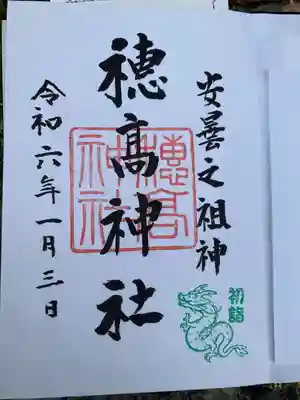 安曇之祖神
初詣
穂髙神社
穂髙神社
令和六年一月三日